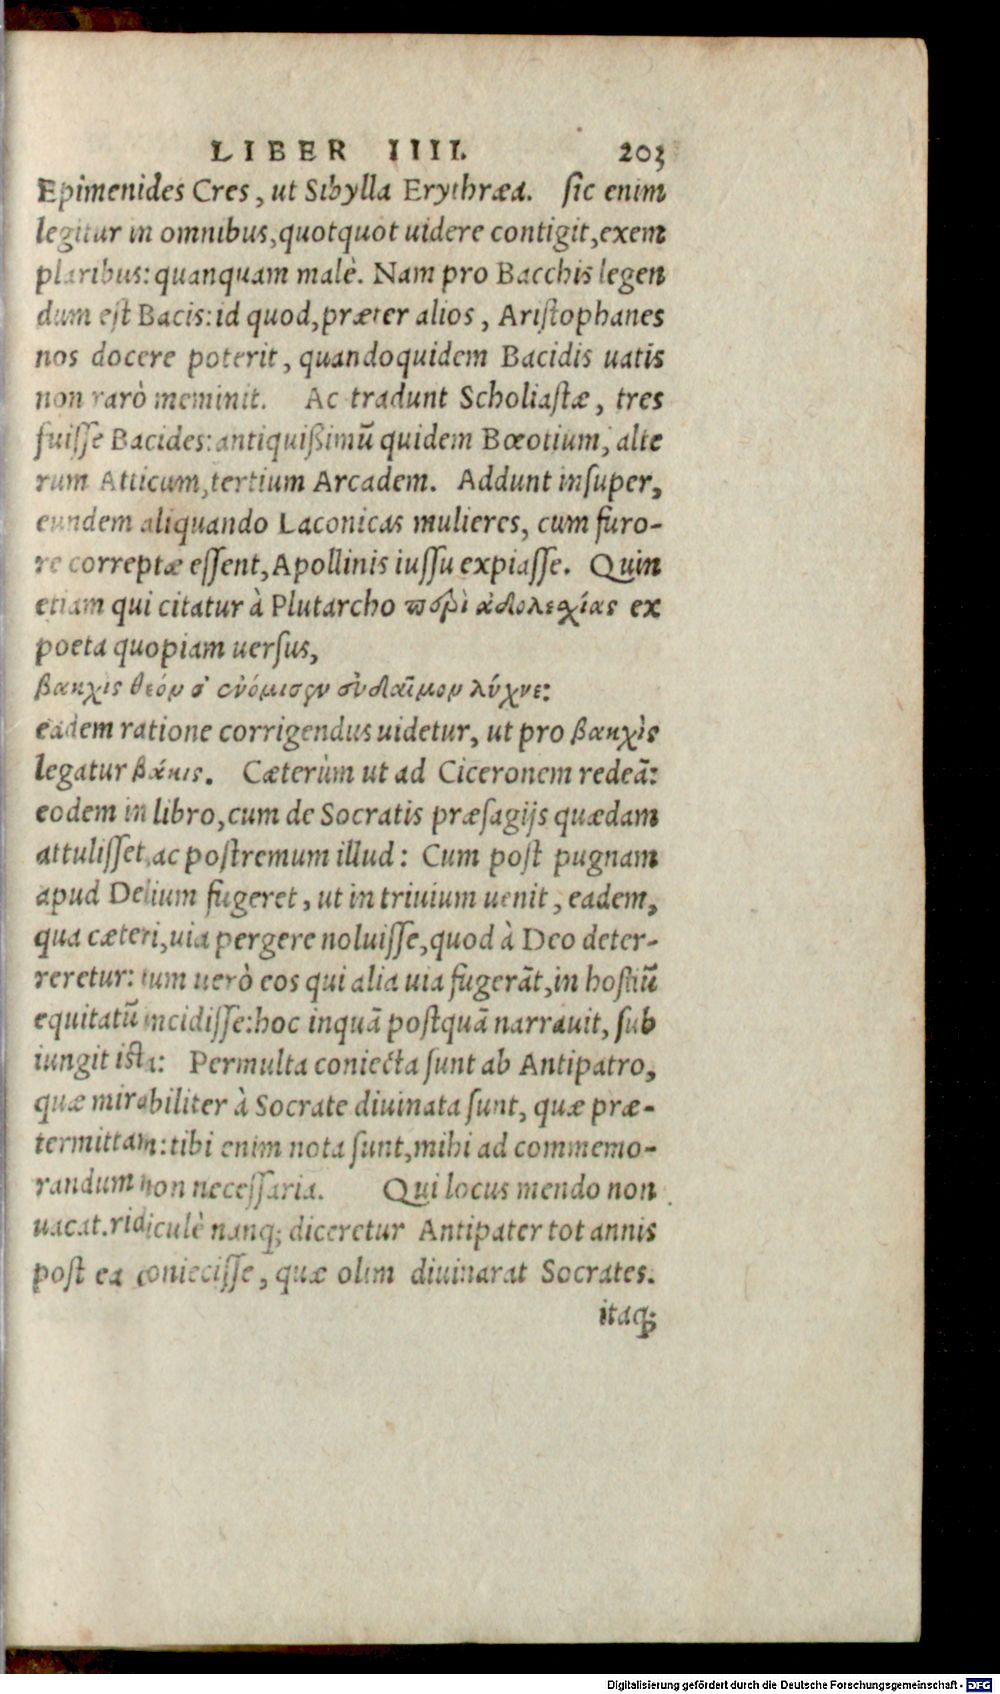 LIBER IIII. 203
Epimenides Cres, ut Sibylla Erythræa. ſic enim
legitur in omnibus, quotquot uidere contigit, exem
plaribus: quanquam malè. Nam pro Bacchis legen
dum eſt Bacis: id quod, præter alios, Ariſtophanes
nos docere poterit, quandoquidem Bacidis uatis
non rarò meminit. Ac tradunt Scholiaſtæ, tres
fuiſſe Bacides: antiquißimū quidem Bœotium, alte
rum Atticum, tertium Arcadem. Addunt inſuper,
eundem aliquando Laconicas mulieres, cum furo-
re correptæ eſſent, Apollinis iuſſu expiaſſe. Quin
etiam qui citatur à Plutarcho περὶ ἀδολεχίας ex
poeta quopiam uerſus,
βακχις θεόν σ' ἐνόμισεν εὔδαιμον λύχνε:
eadem ratione corrigendus uidetur, ut pro βακχὶς
legatur βάκις. Cæterùm ut ad Ciceronem redeā:
eodem in libro, cum de Socratis præſagijs quædam
attuliſſet, ac poſtremum illud: Cum poſt pugnam
apud Delium fugeret, ut in triuium uenit, eadem,
qua cæteri, uia pergere noluiſſe, quod à Deo deter-
reretur: tum uerò eos qui alia uia fugerāt, in hoſtiū
equitatū incidiſſe: hoc inquā poſtquā narrauit, ſub
iungit iſta: Permulta coniecta ſunt ab Antipatro,
quæ mirabiliter à Socrate diuinata ſunt, quæ præ-
termittam: tibi enim nota ſunt, mihi ad commemo-
randum non neceſſaria. Qui locus mendo non
uacat. ridiculè nanq; diceretur Antipater tot annis
poſt ea conieciſſe, quæ olim diuinarat Socrates.
itaq;
Digitalisierung gefördert durch die Deutsche Forschungsgemeinschaft - DFG